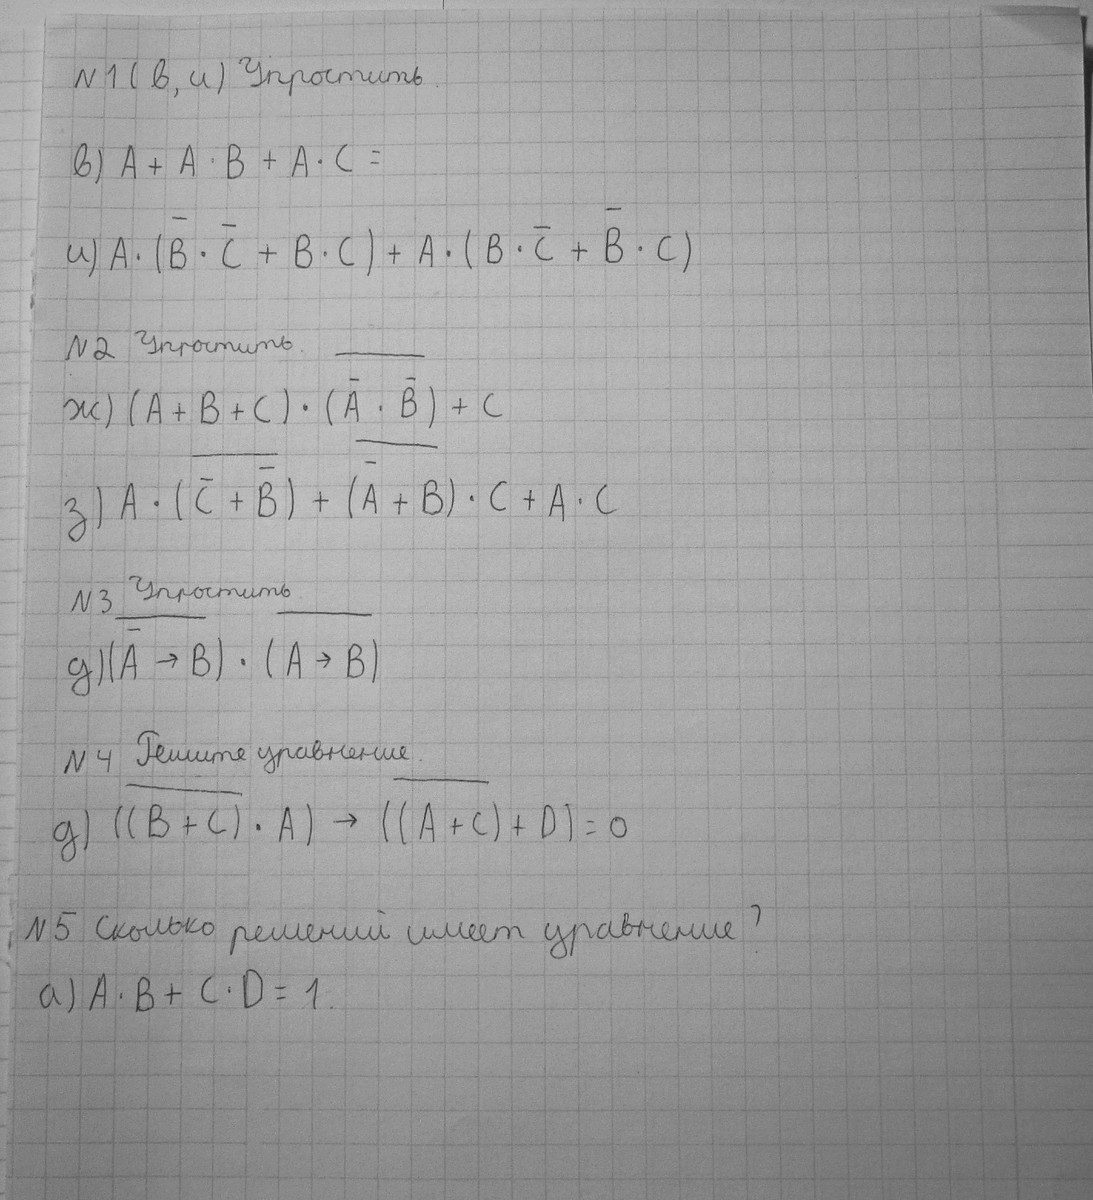 N1 (в, и) Упростить.
в) A + A · B + A · C =
и) A · (B̅ · C̅ + B · C) + A · (B · C̅ + B̅ · C)
N2 Упростить.
ж) (A + B + C) · \overline{(A̅ · B̅)} + C
з) A · \overline{(C̅ + B̅)} + \overline{(A̅ + B)} · C + A · C
N3 Упростить.
д) \overline{(A̅ → B)} · \overline{(A → B)}
N4 Решите уравнение.
д) (\overline{(B + C)} · A) → (\overline{(A + C)} + D) = 0
N5 Сколько решений имеет уравнение?
а) A · B + C · D = 1.